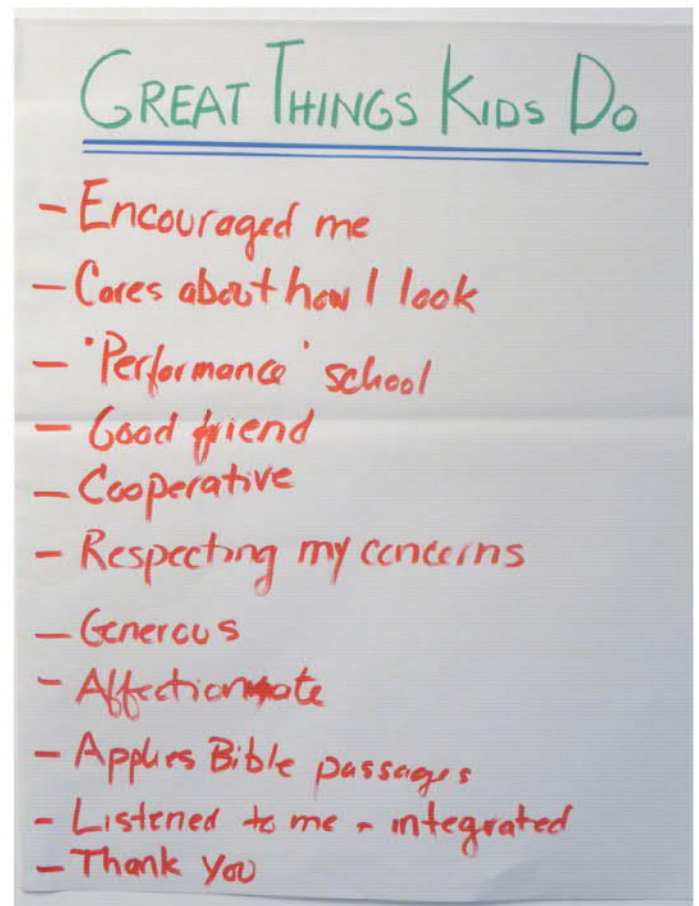 GREAT THINGS KIDS DO
- Encouraged me
- Cares about how I look
- 'Performance' school
- Good friend
- Cooperative
- Respecting my concerns
- Generous
- Affectionate
- Applies Bible passages
- Listened to me - integrated
- Thank You